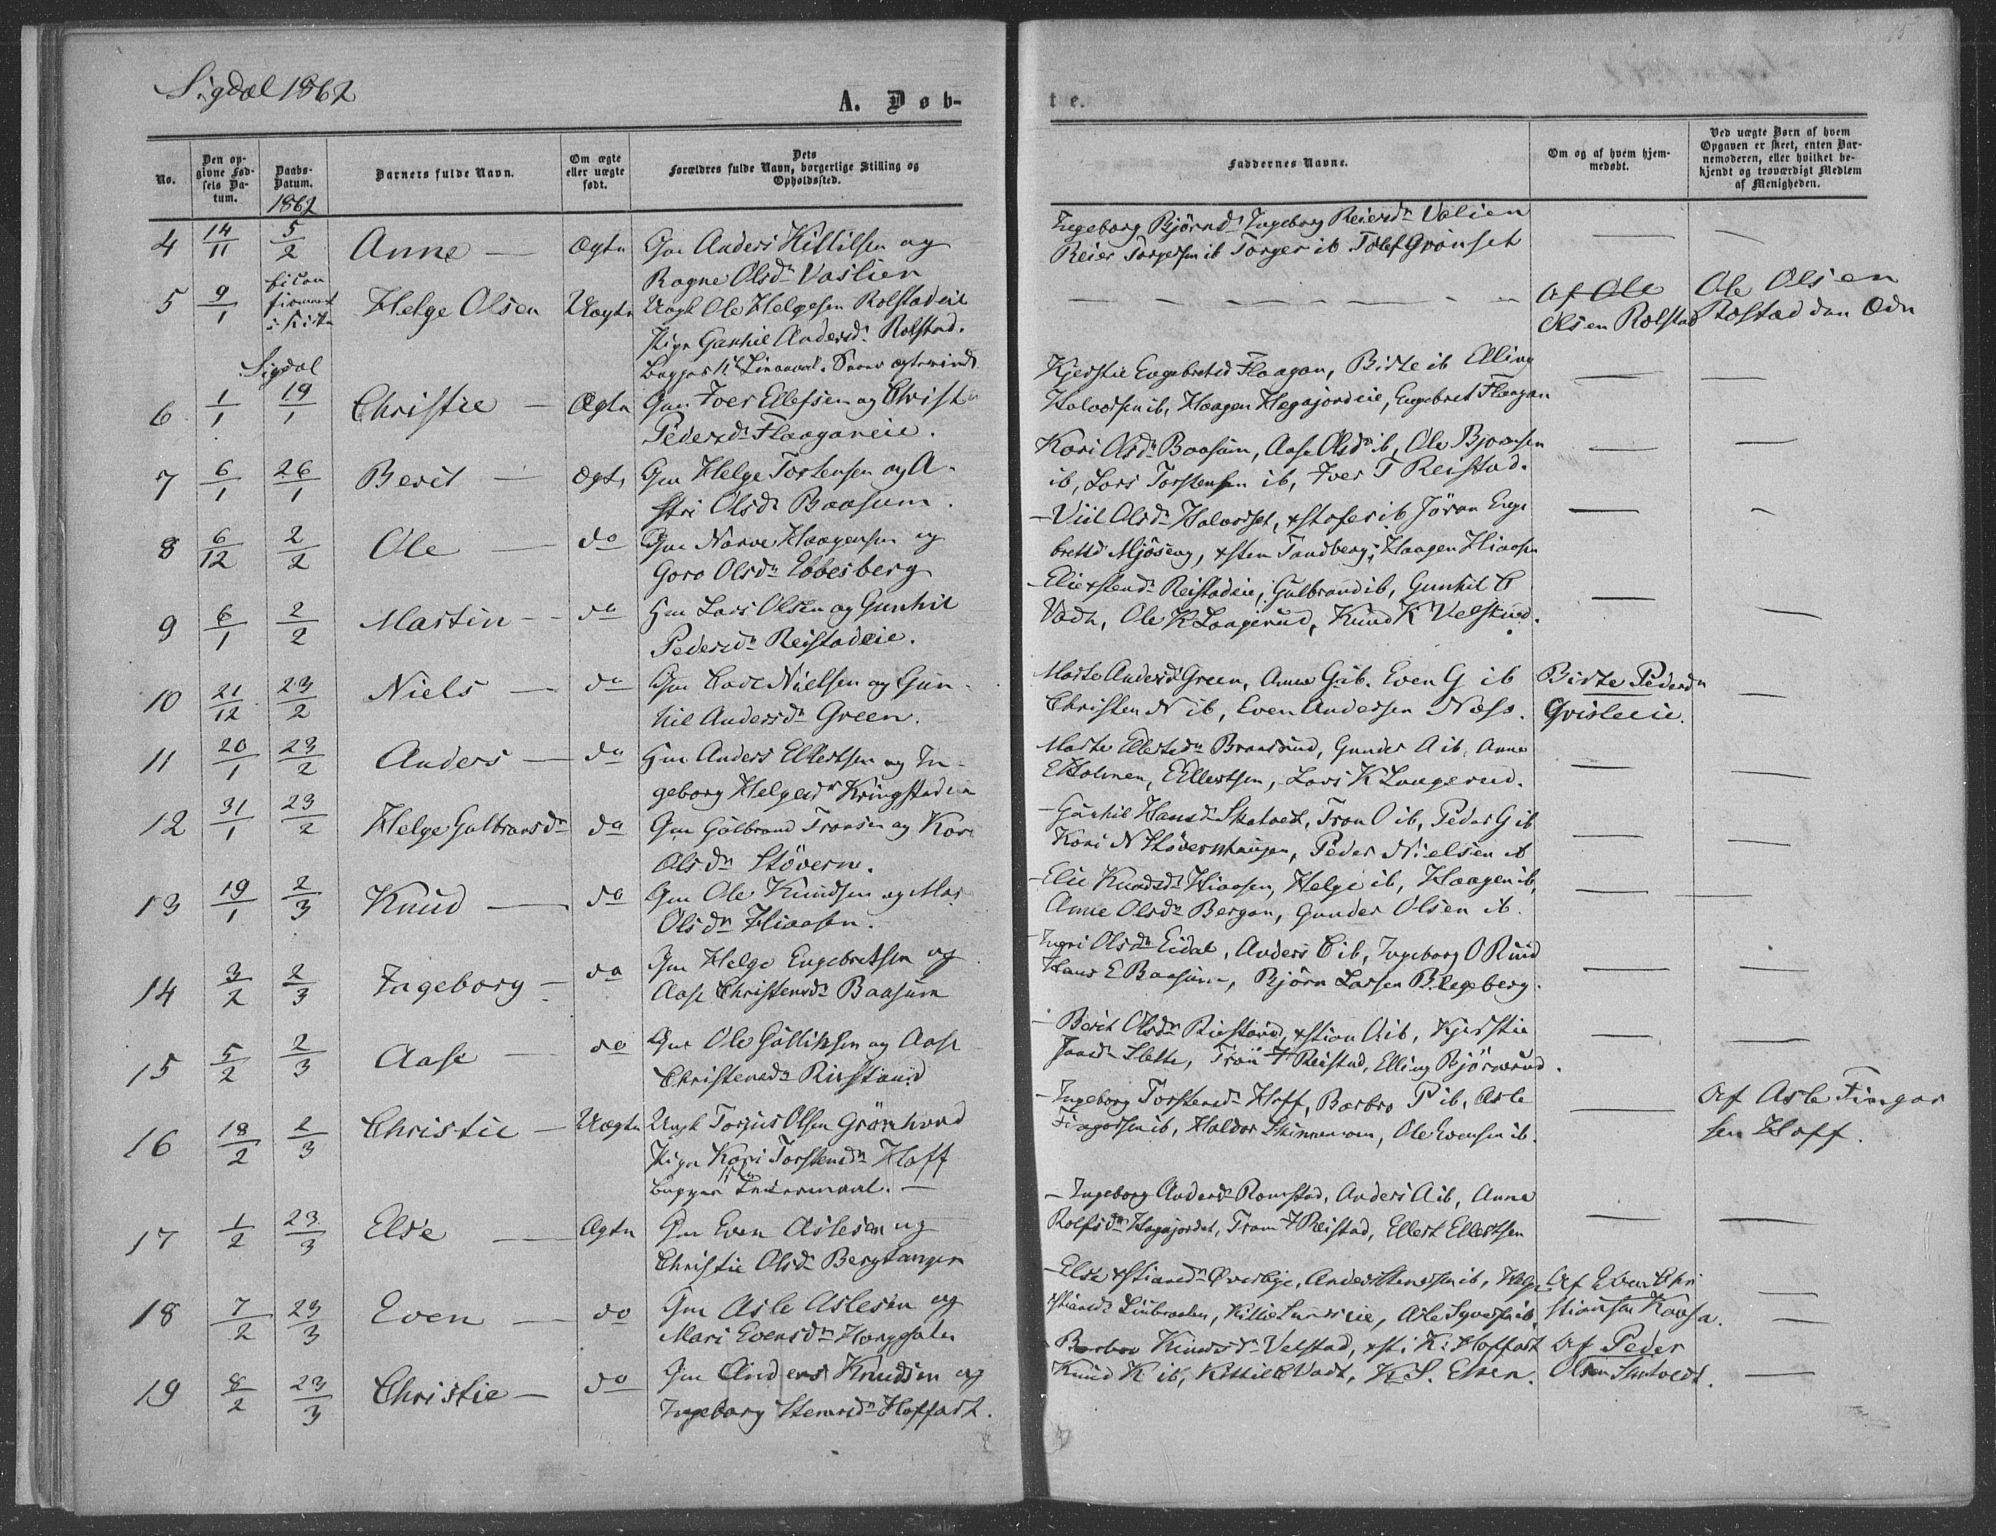 Sigdal 1862
A. Døb-
te.
No.
Den opgivne Fødsels Datum.
Daabs-Datum.
1862
Barnets fulde Navn.
Om ægte eller uægte født.
Dets Forældres fulde Navn, borgerlige Stilling og Opholdssted.
Faddernes Navne.
Om og af hvem hjemmedøbt.
Ved uægte Børn af hvem Opgaven er skeet, enten Barnemoderen, eller hvilket bekjendt og troværdigt Medlem af Menigheden.
4 14/11 5/2 Anne — Ægte Gm Anders Kittilsen og
Ragne Olsdr Vaslien
Ingeborg Bjørnsd. Ingeborg Reiersdr Velien
Reier Torgersen ib Torger ib Tolef Grønset
5 9/1 Helge Olsen Uægte Ungk Ole Helgesen Rolstadeie
Pige Gunhil Andersd. Rolstad.
Af Ole
Olsen Rolstad
Ole Olsen
Rostad den Edr
Sigdal
6 1/1 19/1 Christie — Ægte Gm Iver Ellefsen og Christie
Pedersdr Flaaganeie.
Kjerstie Engebretsd Flaagan, Birte ib Elling
Halvorsen ib, Haagen Hegajordeie, Engebret Flaagan
7 6/1 26/1 Berit — Ægte Gm Helge Torstensen og A-
stri Olsdr Baasum.
Kari Olsdr Baasum, Aase Olsdr ib, Ole Bjørnsen
ib, Lars Torstensen ib, Iver T Reistad.
8 6/12 2/2 Ole — do Gm Narve Haagensen og
Goro Olsdr Ebbesberg
— Viil Olsdr Halvorset, Kstofer ib Jøran Enge
bretsd Mjøseng, Sten Tandberg, Haagen Hiaasen
9 6/1 2/2 Martin — do Gm Lars Olsen og Gunhil
Pedersdr Reistadeie.
Reistadeie, Gulbrand ib, Gunhil
Vadt, Ole K Laagerud, Knud K Velstad.
10 21/12 23/2 Niels — do Gm Nielsen og Gun-
hil Andersdr Green.
Marte Andersd Green, Anne G ib. Even G ib
Christen N ib, Even Andersen Næss.
Birte Pedersdr
Qvisleeie.
11 20/1 23/2 Anders — do Gm Anders Ellertsen og In-
geborg Helgesdr Kringstadeie
Marte Ellertsdr Braasrud, Gunder A ib, Anne
E Holmen, E Ellertsen, Lars K Laagerud.
12 31/1 23/2 Helge Gulbransdr do Gm Gulbrand Tronsen og Kari
Olsdr Støvern.
— Gunhil Hansd Skatvedt, Tron O ib, Peder G ib
Kari N Støvernhaugen, Peder Nielsen ib
13 19/1 2/3 Knud — do Gm Ole Knudsen og Mari
Olsdr Hiaasen.
— Elie Knudsdr Hiaasen, Helge ib, Haagen ib,
Anne Olsdr Bergan, Gunder Olsen ib.
14 3/2 2/3 Ingeborg — do Gm Helge Engebretsen og
Aase Christensdr Baasum
Ingri Olsdr Eidal, Anders C ib, Ingeborg O Ruud
Hans E Baasum, Bjørn Larsen Blegeberg.
15 5/2 2/3 Aase — do Gm Ole Gulliksen og Aase
Christensdr Riistand
— Berit Olsdr Riistand, Kstian A ib, Kjerstie
Slette, Tron T Reistad, Elling Bjørnerud.
16 18/2 2/3 Christie — Uægte Ungk Torjus Olsen Grønhovd
Pige Kari Torstensdr Hoff
Begges 1ste Leiermaal. —
— Ingeborg Torstensdr Hoff, Barbro P ib, Asle
Fingarsen ib, Haldor Skinnemoen, Ole Evensen ib.
Af Asle Fingar
sen Hoff.
17 1/2 23/3 Else — Ægte Gm Even Aslesen og
Christie Olsdr Bergtangen
— Ingeborg Andersd Romstad, Anders A ib, Anne
Rolfsdr Hagajordet, Tron T Reistad, Ellert Ellertsen
18 7/2 23/3 Even — do Gm Asle Aslesen og
Mari Evensdr Horggata
Else Kstiansdr Øverbye, Anders Stenersen ib, Helge
Asle Syversen ib,
Af Even Chri
stiansen Kaasa.
19 8/2 23/3 Christie — do Gm Anders Knudsen og
Ingeborg Stenersdr Hoffart.
Barbro Knudsdr Velstad, Ksti K. Hoffart
Knud K ib, Kittil E Vadt, K S. Elsen.
Af Peder
Olsen Skatvedt.